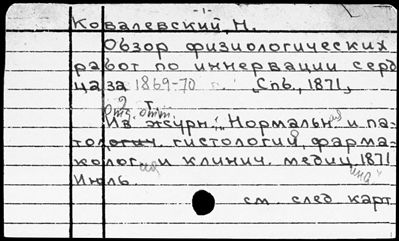 -1-
Ковалевский, Н.
Обзор физиологических
работ по иннервации серд
ца за 1869-70 Спб., 1871,
отт.
Из журн. „Нормальн. и па-
тологич. гистологии, фарма-
кологии и клинич. медиц. 1871
Июль.
см. след карт